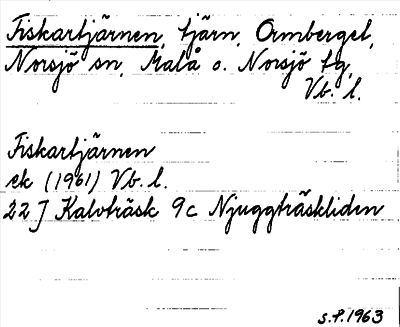 Fiskartjärnen, tjärn, Ormberget,
Norsjö sn, Malå o. Norsjö tg,
Vb. l.
Fiskartjärnen
ek (1961) Vb. l.
22 J Kalvträsk 9c Njuggträskliden
s.f. 1963